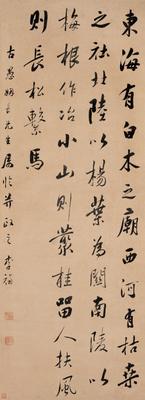 東海有白木之廟西河有枯桑
之社北陸以楊葉為關南陵以
梅根作冶小山則叢桂留人扶風
則長松繫馬
古愚先生屬政之李福